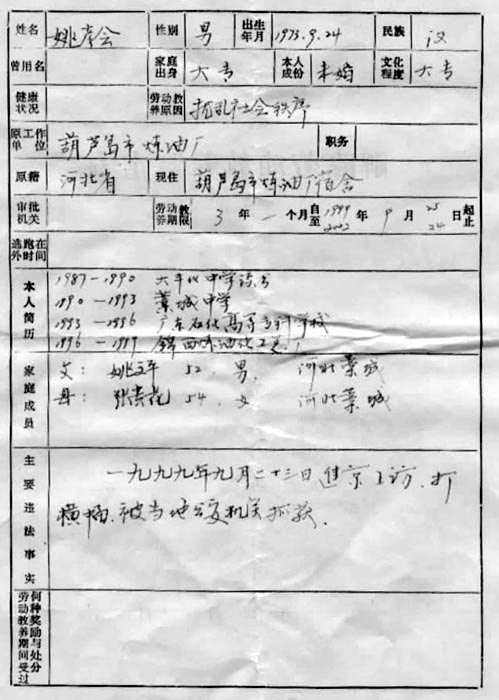 姓名 姚彦会 性别 男 出生年月 1973.9.24 民族 汉
曾用名 家庭出身 大专 本人成份 未婚 文化程度 大专
健康状况 劳动教养原因 扰乱社会秩序
原工作单位 葫芦岛市炼油厂 职务
原籍 河北省 现住 葫芦岛市炼油厂宿舍
审批机关 劳动教养期限 3年一个月自1999年9月25日起
至2002 24 止
逃跑在外时间
本人简历
1987—1990 中学读书
1990—1993 藁城中学
1993—1996 广东石化高等专科学校
1996—1999 锦西炼油化工厂
家庭成员
父: 姚 52. 男. 河北藁城
母: 张 花 54. 女 河北藁城
主要违法事实
一九九九年九月二十三日进京上访.打
横幅.被当地公安机关抓获.
劳动教养期间受过何种奖励与处分